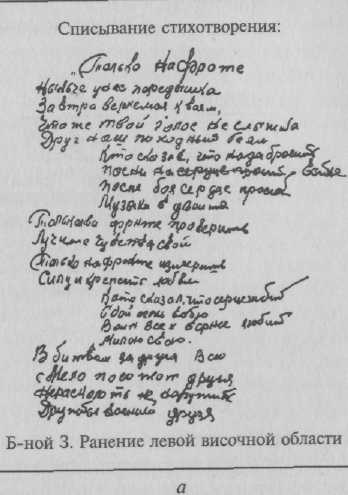 Списывание стихотворения:
„Только на фронте
Нынче у нас передышка
Завтра вернемся к боям,
Что же твой голос не слышно
Друг наш походный баян
Кто сказал, что надо бросить
песни на войне
После боя сердце просит
Музыки вдвойне
Только на фронте проверишь
Лучшие чувства свои
Только на фронте измеришь
Силу и крепость любви
Кто сказал, что сердце
Воин всех вернее любит
Милою свою.
В битвах за друга всю
смело посожат друзья
Нерасторгать не нарушить
Дружбы военной друзья
Б-ной З. Ранение левой височной области
а